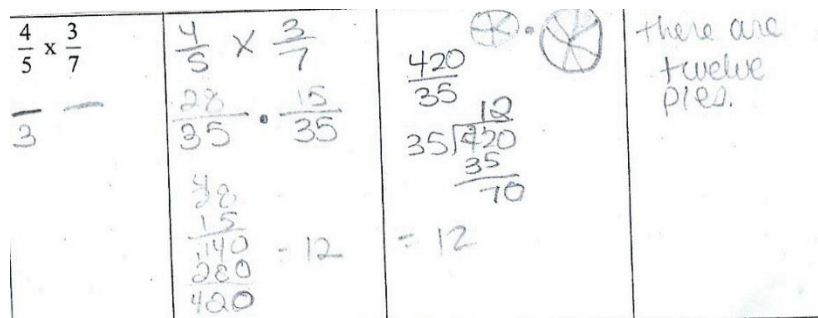 4/5 x 3/7
3
4/5 x 3/7
28/35 · 15/35
28
15
140
280
420
= 12
420/35
12
35)420
35
70
= 12
there are
twelve
pies.